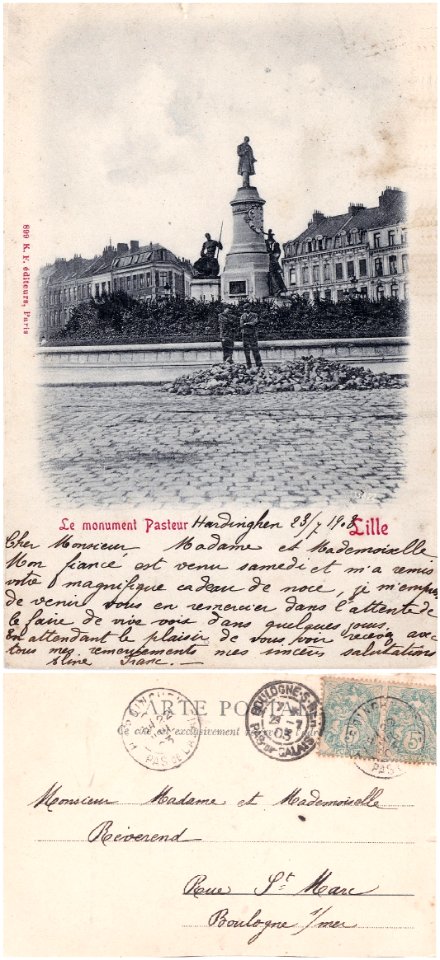 899 K. F. éditeurs, Paris
Le monument Pasteur Hardinghen 23/7 1903 Lille
Cher Monsieur Madame et Mademoiselle
Mon fiancé est venu samedi et m'a remis
votre magnifique cadeau de noce, je m'empresse
de venir vous en remercier dans l'attente de
le faire de vive voix dans quelques jours.
En attendant le plaisir de vous voir recevez avec
tous mes remerciements mes sincères salutations
Franc
CARTE POSTALE
Ce côté est exclusivement réservé à
PAS DE CA
BOULOGNE-S-MER
23 -7
03
PAS DE CALAIS
5
Monsieur Madame et Mademoiselle
Réverend
Rue St Marc
Boulogne s/mer